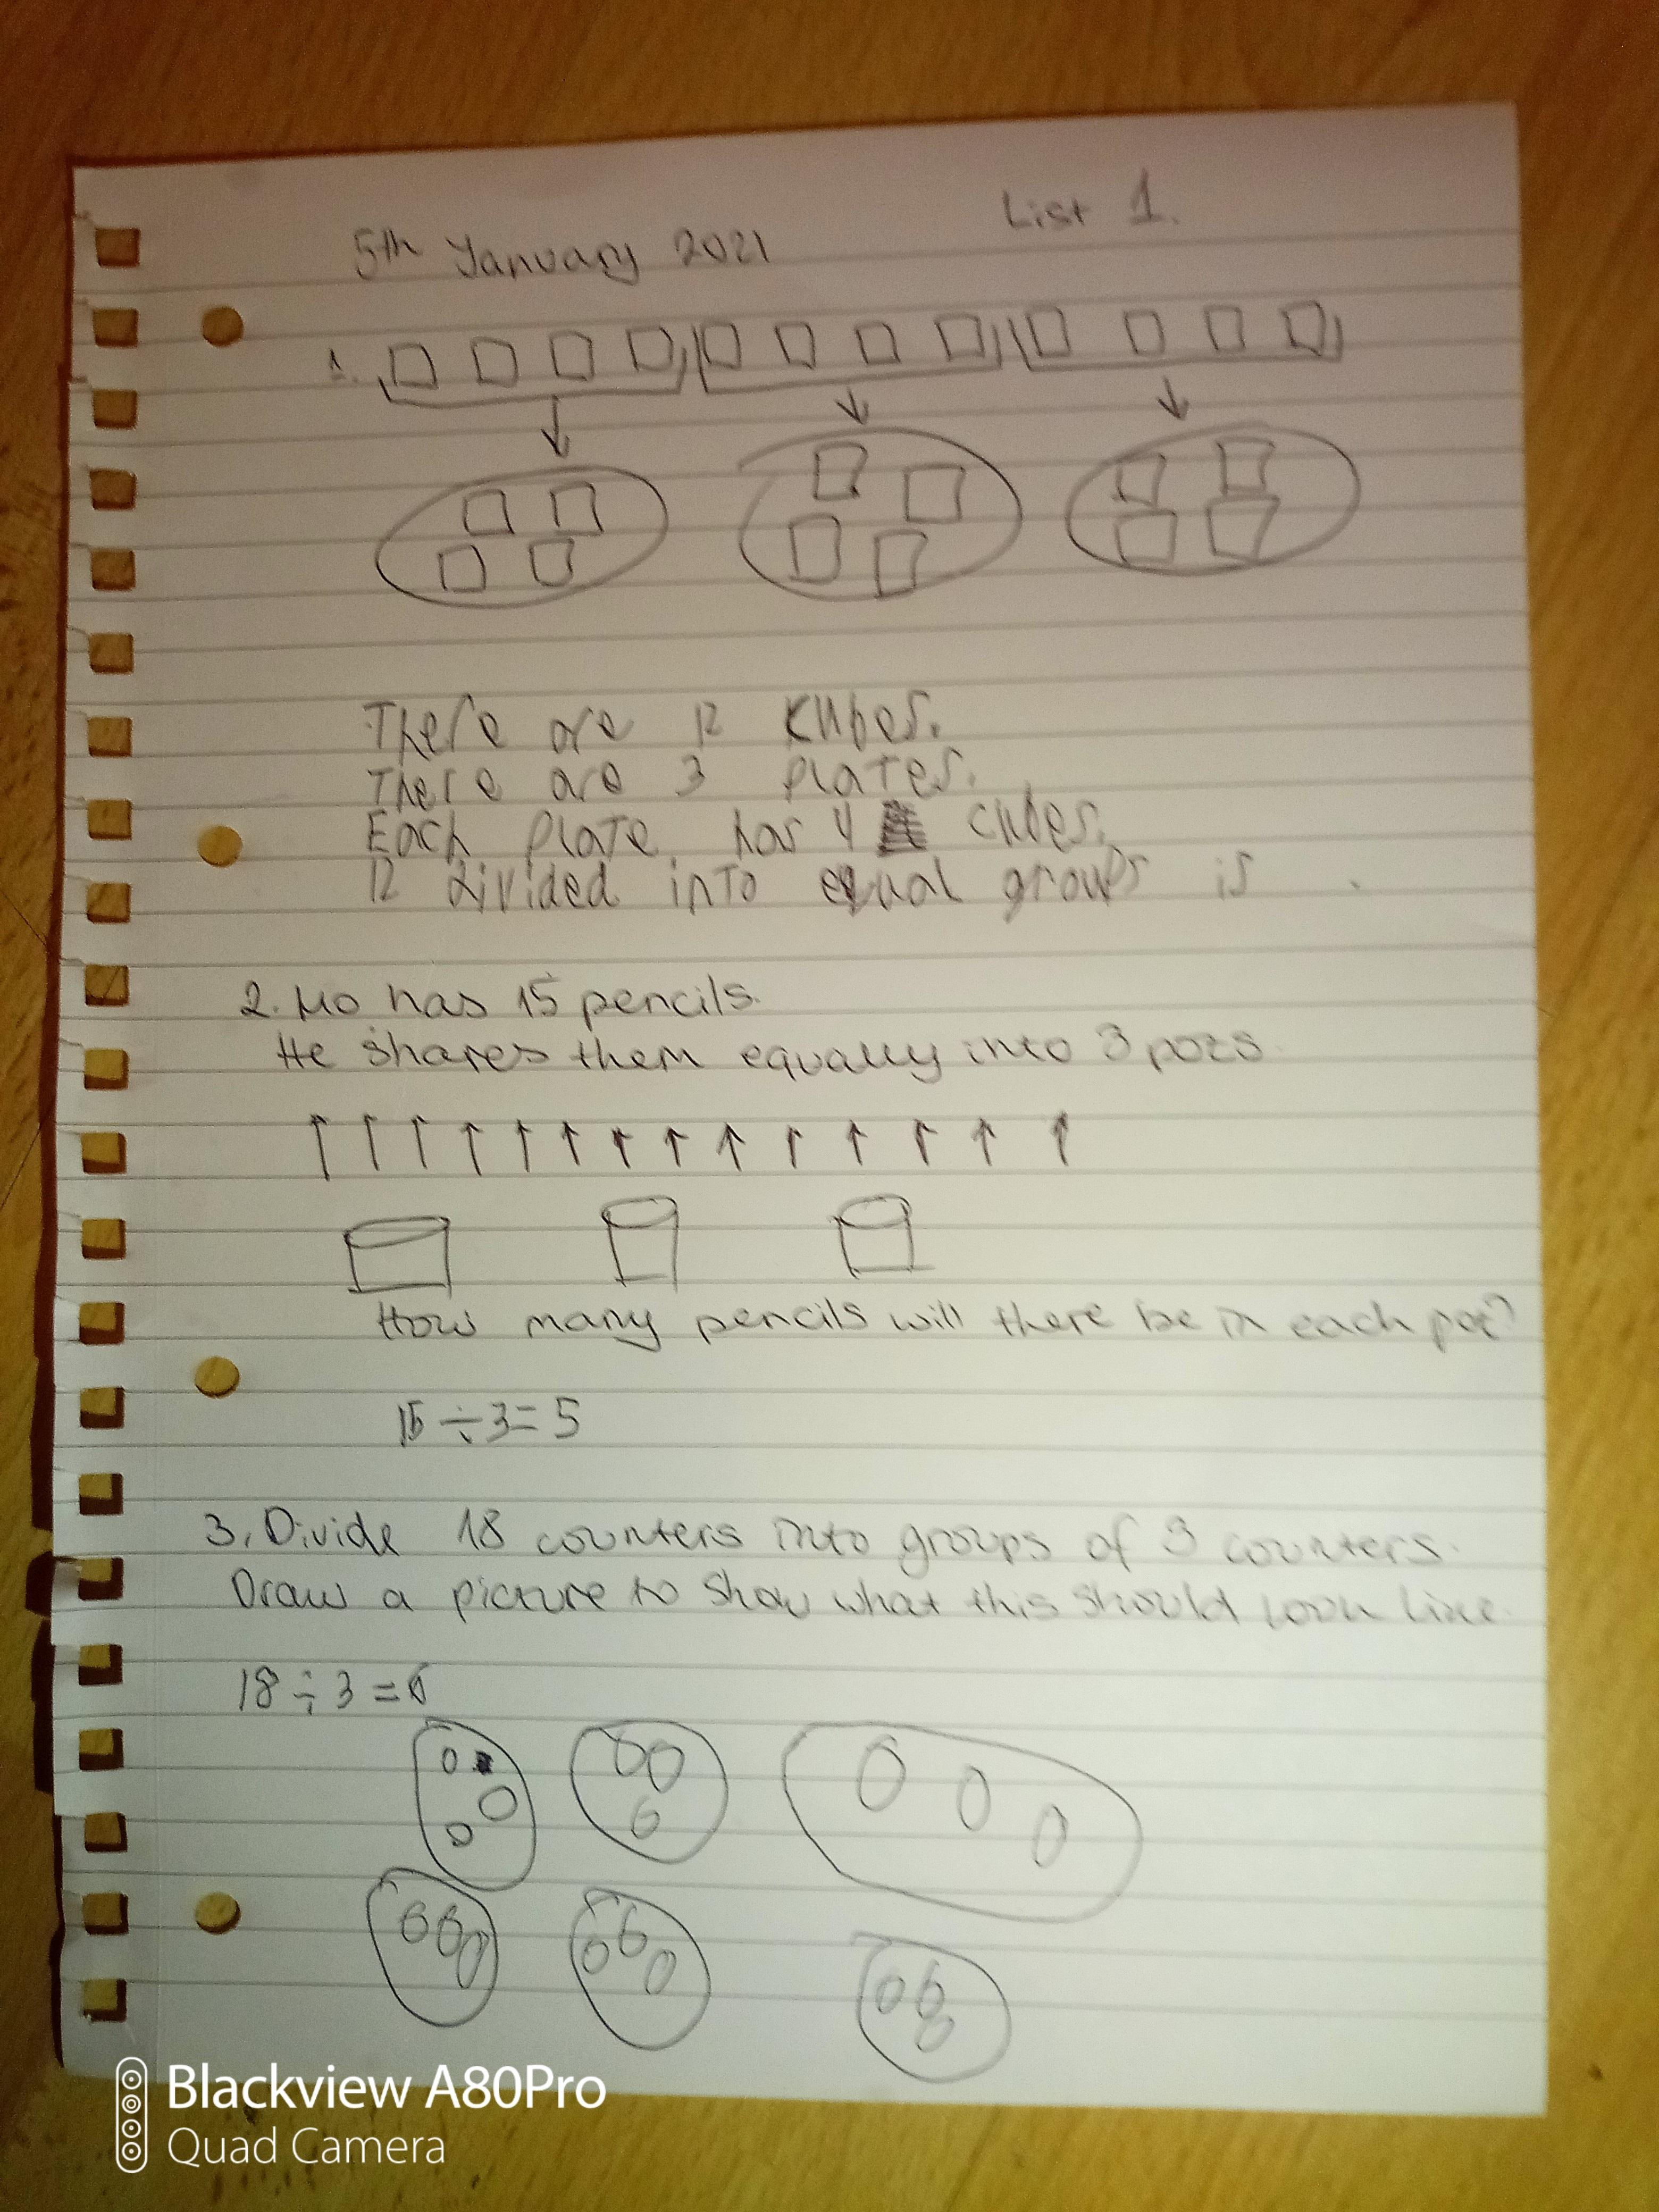 List 1.
5th January 2021
1.
There are 12 Kubes.
There are 3 plates.
Each plate has 4 cubes.
12 divided into equal groups is .
2. Mo has 15 pencils.
He shares them equally into 3 pots.
How many pencils will there be in each pot?
15 ÷ 3 = 5
3. Divide 18 counters into groups of 3 counters.
Draw a picture to show what this should look like.
18 ÷ 3 = 6
Blackview A80Pro
Quad Camera